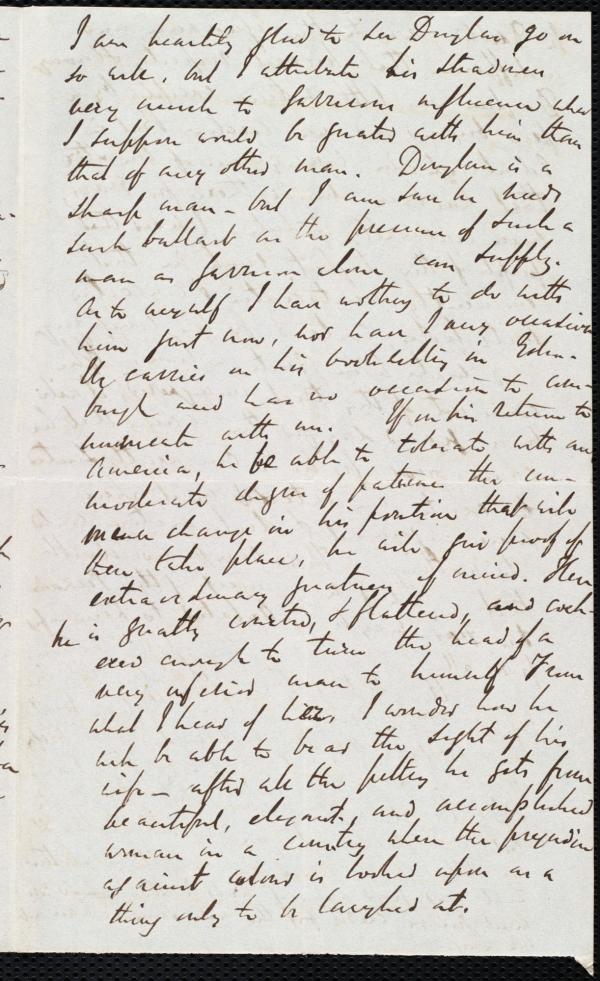 I am heartily glad to see Douglas go on
so well, but I attribute his steadiness
very much to Garrisons influence which
I suppose would be greater with him than
that of any other man. Douglas is a
sharp man - but I am sure he needs
such ballast as the presence of such a
man as Garrison alone can supply.
As to myself I have nothing to do with
him just now, nor have I any occasion
He carries on his bookselling in Edin-
burgh and has no occasion to com-
municate with me. If on his return to
America, he be able to tolerate with any
moderate degree of patience the im-
mense change in his position that will
then take place, he will give proof of
extraordinary greatness of mind. Here
he is greatly courted, & flattered, and
enough to turn the head of a
very inferior man to himself From
what I hear of him, I wonder how he
will be able to bear the sight of his
wife - after all the petting he gets from
beautiful, elegant, and accomplished
woman in a country where the prejudice
against colour is looked upon as a
thing only to be laughed at.